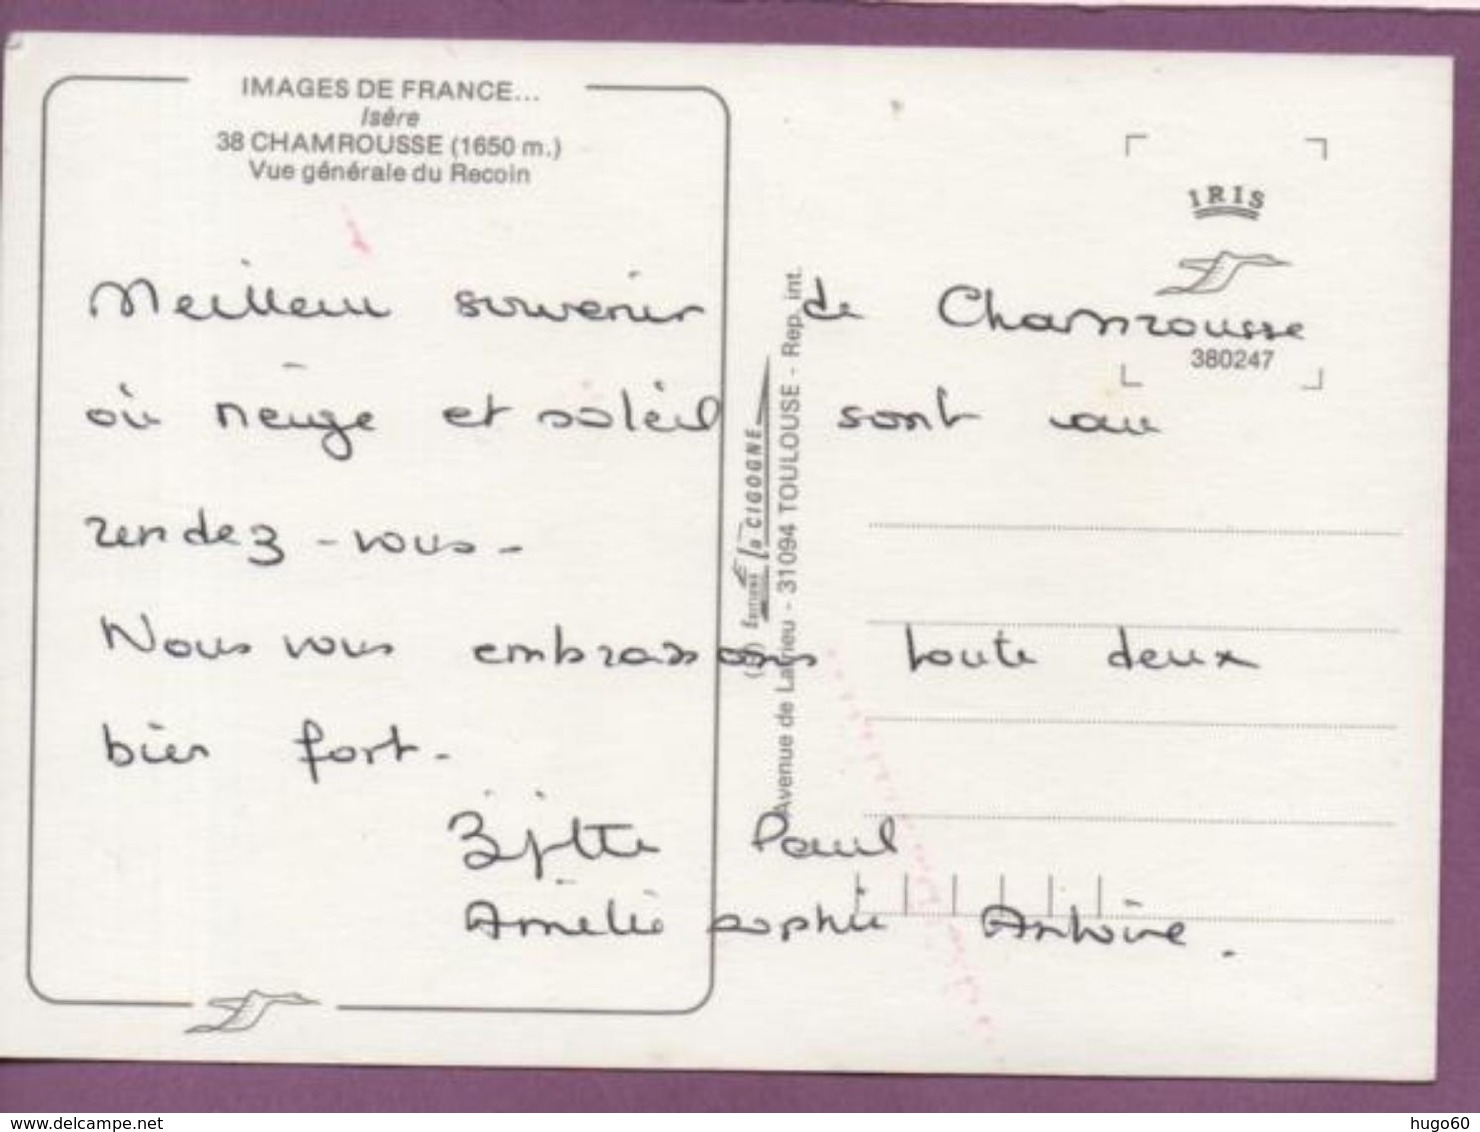 IMAGES DE FRANCE...
Isère
38 CHAMROUSSE (1650 m.)
Vue générale du Recoin
IRIS
380247
Meilleur souvenir de Chamrousse
où neige et soleil sont au
rendez-vous-
Nous vous embrassons toute deux
bien fort-
Paul
Amélie sophie Antoine.
Editions la CIGOGNE
Avenue de Larrieu - 31094 TOULOUSE - Rep. int.
delcampe.net
hugo60